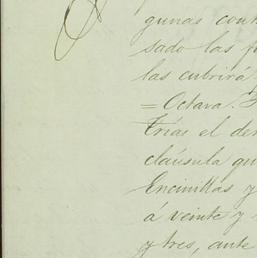 gunas cont
sado las
las cubrirá
= Octava.
Trías el der
cláusula qu
Encinillas y
á veinte y
y tres, ante